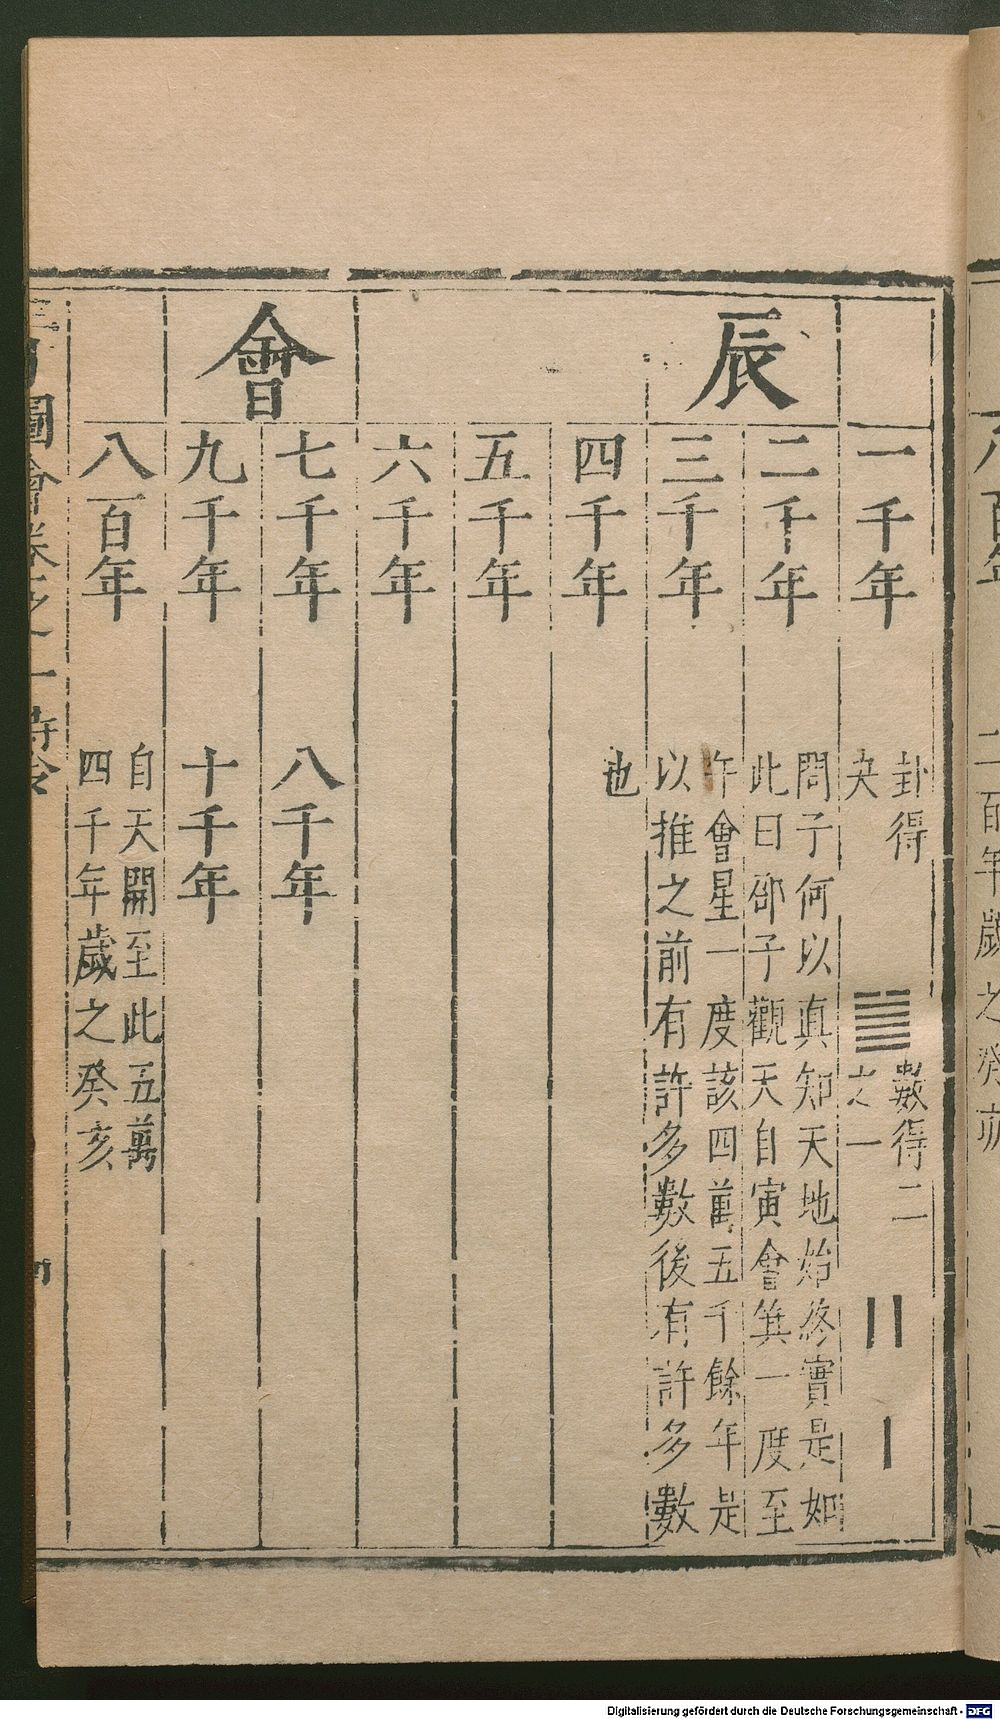 辰會
一千年
卦得
數得二
夬
䷪
之一
二千年
問子何以真知天地始終實是如
此曰邵子觀天自寅會箕一度至
三千年
午會星一度該四萬五千餘年是
以推之前有許多數後有許多數
四千年
也
五千年
六千年
七千年 八千年
九千年 十千年
八百年
自天開至此五萬
四千年歲之癸亥
圖會卷之一 時令
八百年
二百年歲之癸亥
Digitalisierung gefördert durch die Deutsche Forschungsgemeinschaft - DFG